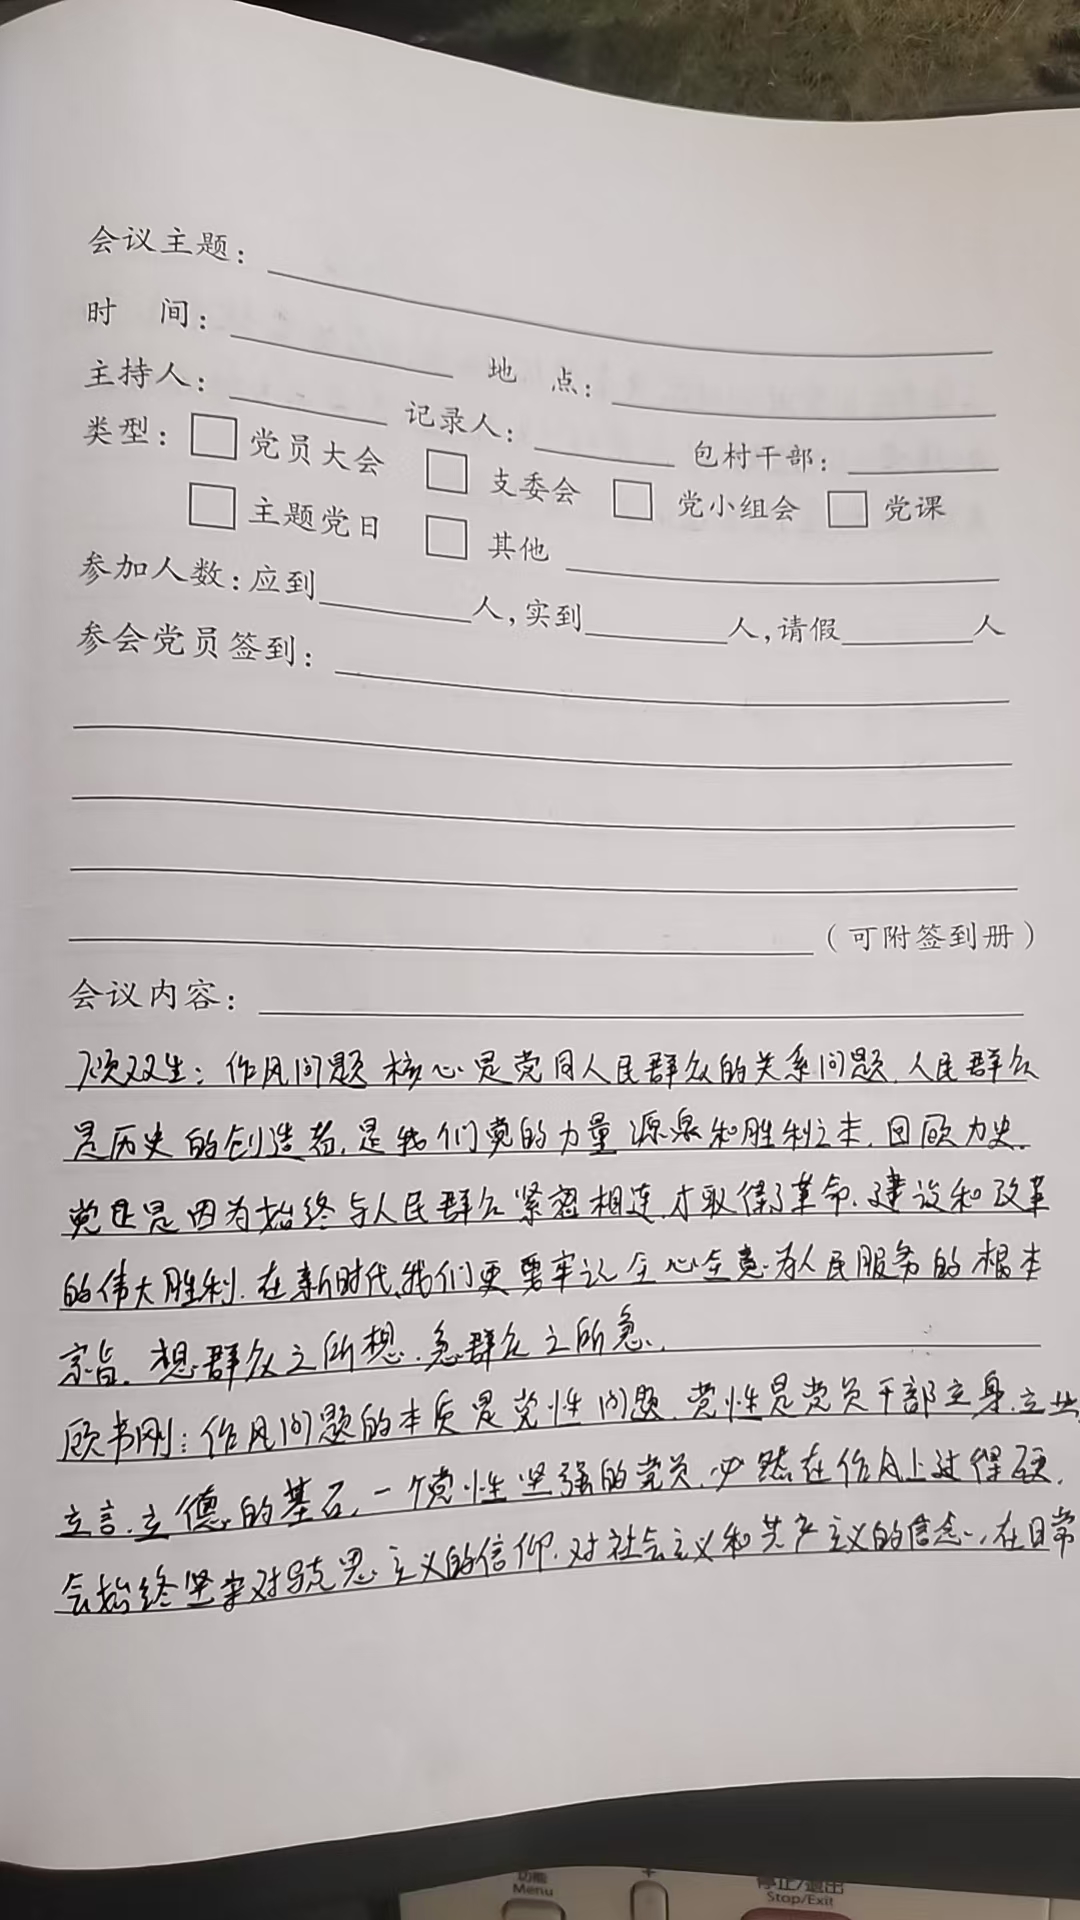 会议主题：
时 间：
地 点：
主持人：
记录人：
包村干部：
类型：□党员大会 □支委会 □党小组会 □党课
□主题党日 □其他
参加人数：应到 人，实到 人，请假 人
参会党员签到：
（可附签到册）
会议内容：
顾双生：作风问题核心是党同人民群众的关系问题.人民群众
是历史的创造者,是我们党的力量源泉和胜利之本.回顾力史.
党正是因为始终与人民群众紧密相连,才取得了革命.建设和改革
的伟大胜利.在新时代,我们更要牢记全心全意为人民服务的根本
宗旨.想群众之所想.急群众之所急.
顾书刚：作风问题的本质是党性问题.党性是党员干部立身.立业
立言.立德的基石.一个党性坚强的党员.必然在作风上过得硬.
会始终坚守对马克思主义的信仰.对社会主义和共产主义的信念.,在日常
功能
Menu
+
停止/退出
Stop/Exit